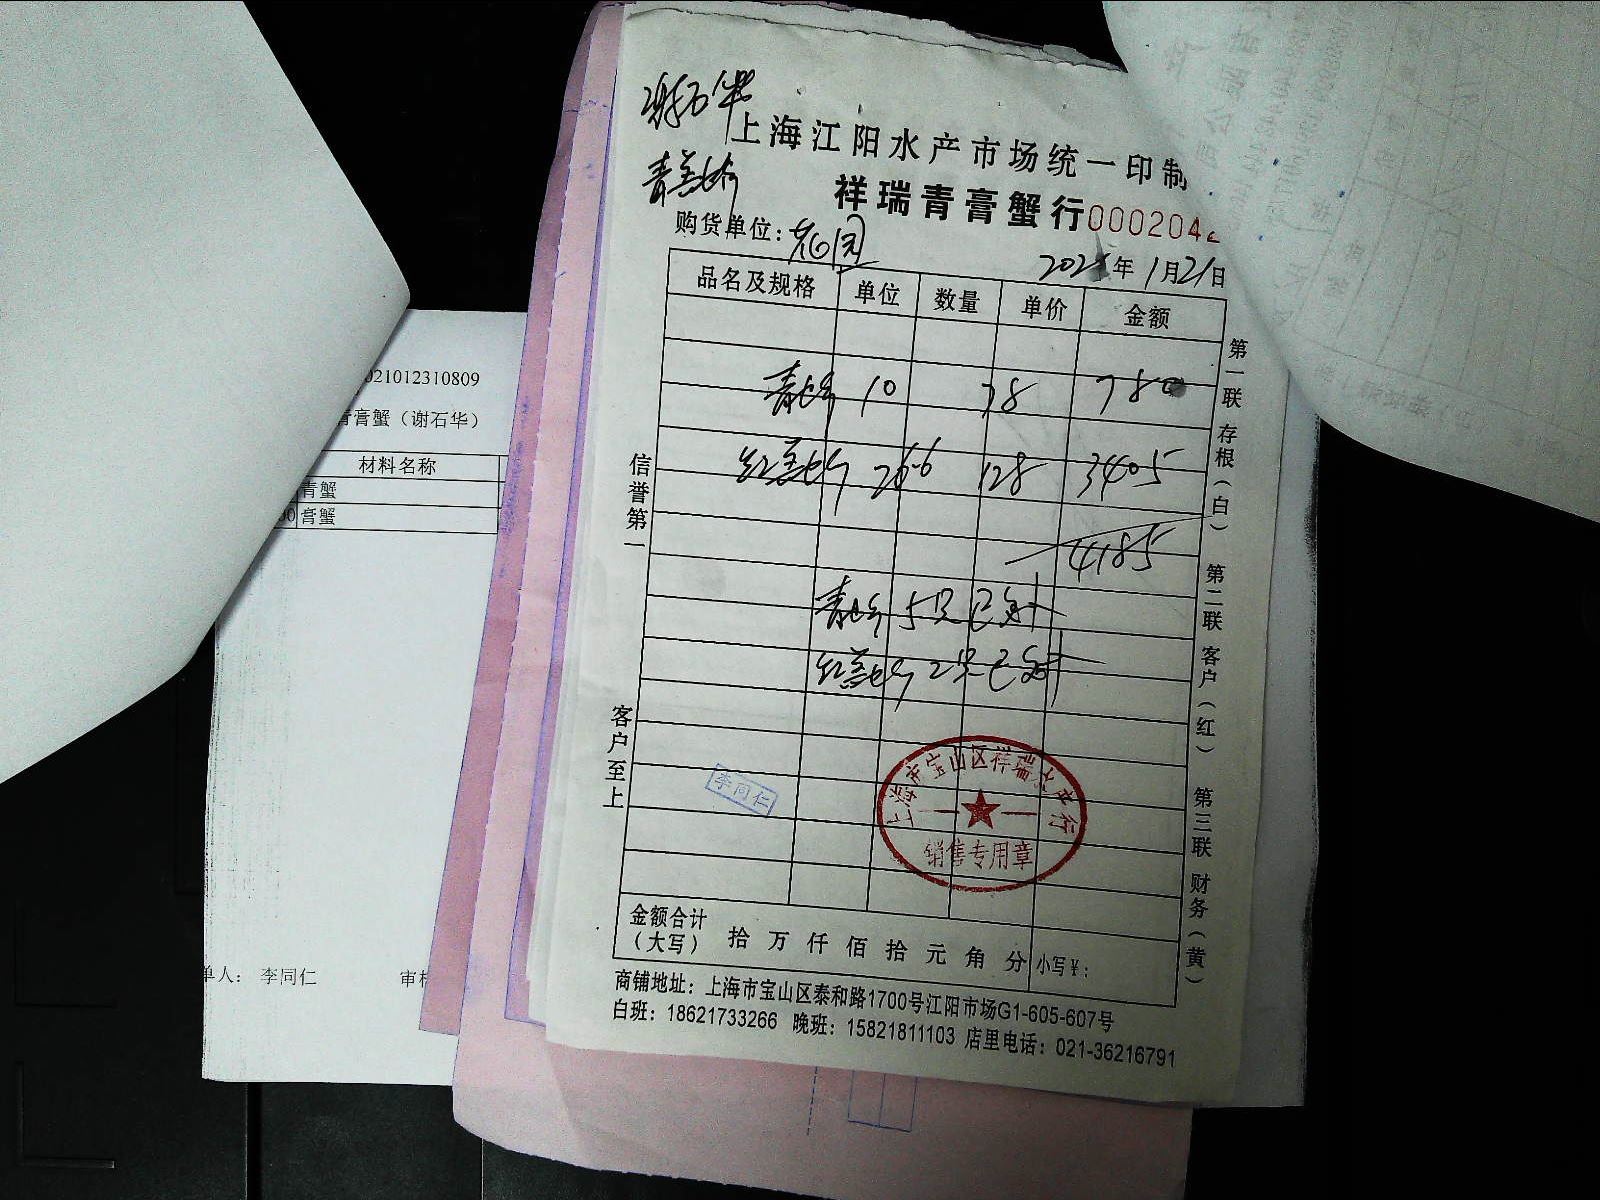 谢石华
上海江阳水产市场统一印制
青羔蟹
祥瑞青膏蟹行 000204
购货单位: 花园
2021年 1月21日
品名及规格 单位 数量 单价 金额
青蟹 10 78 780
红羔蟹 26.6 128 3405
4185
青蟹 5只已
红羔蟹 2只已
信誉第一
客户至上
第一联 存根(白)
第二联 客户(红)
第三联 财务(黄)
李同仁
上海市宝山区祥瑞水产行
销售专用章
金额合计
(大写) 拾 万 仟 佰 拾 元 角 分 小写¥:
商铺地址: 上海市宝山区泰和路1700号江阳市场G1-605-607号
白班: 18621733266 晚班: 15821811103 店里电话: 021-36216791
021012310809
青膏蟹(谢石华)
材料名称
青蟹
膏蟹
单人: 李同仁 审核